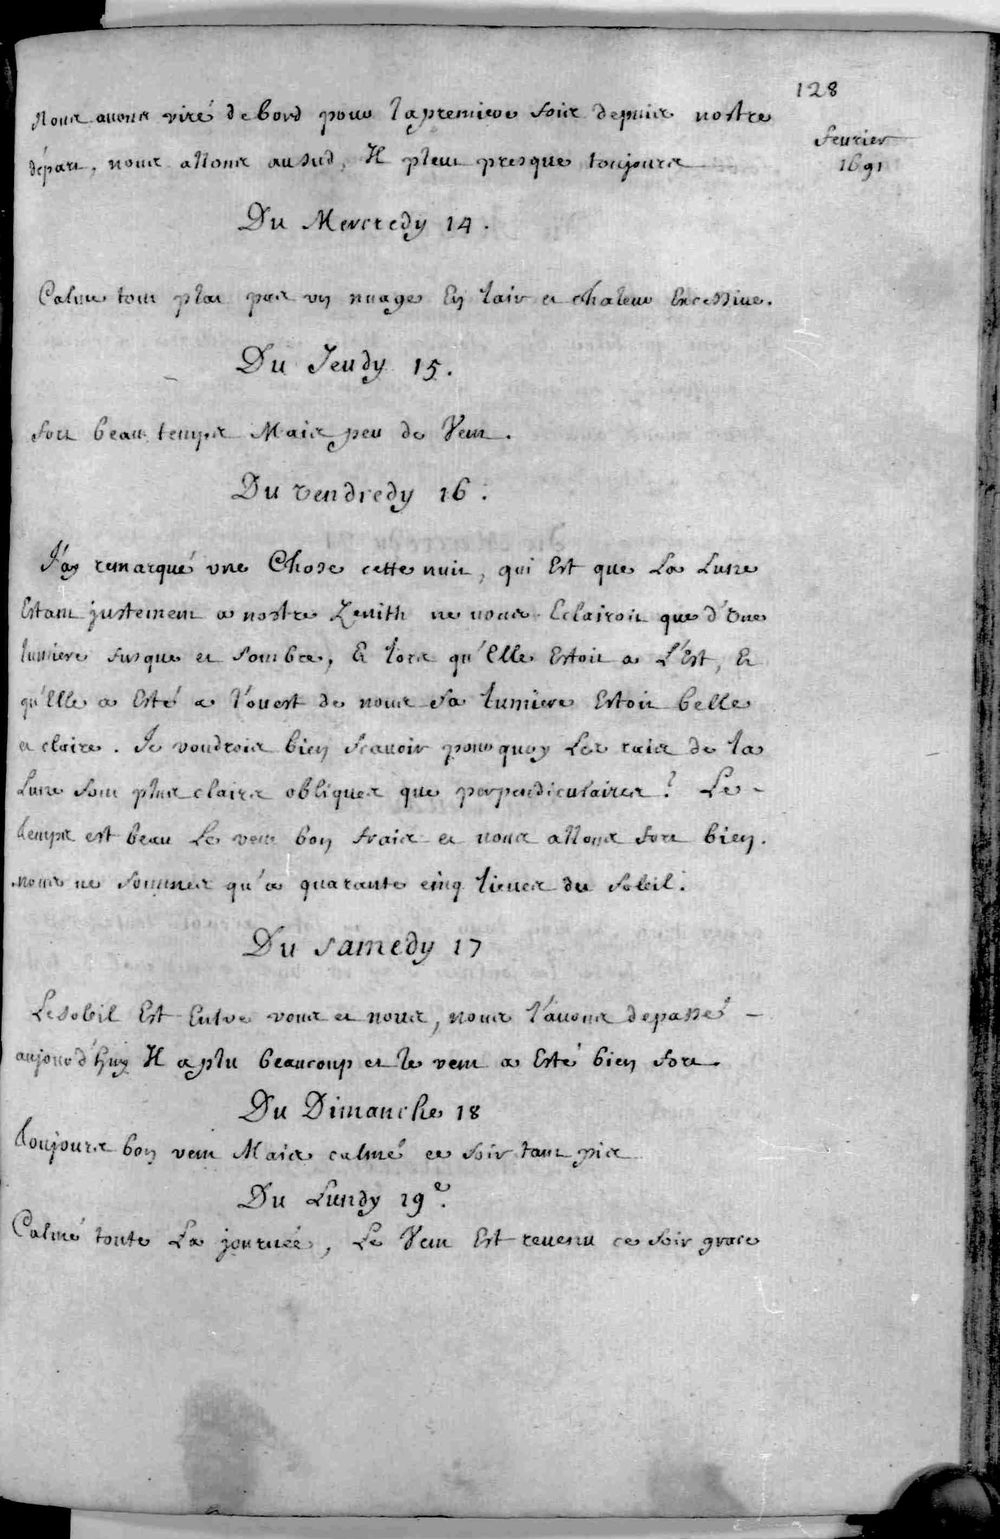 128
Nous auons viré de bord pour la premiere fois depuis nostre
feurier
1691
départ, nous allons au sud, Il pleut presque toujours
Du Mercredy 14.
Calme tout plat pas un nuage En l'air et chaleur Excessiue.
Du Jeudy 15.
fort beau temps Mais peu de Vent.
Du vendredy 16.
J'ay remarqué vne Chose cette nuit, qui Est que La Lune
Estant justement a nostre Zenith ne nous Eclairoit que d'vne
lumiere fusque et sombre, Et lors qu'Elle Estoit a L'Est, Et
qu'Elle a Esté a l'ouest de nous sa lumiere Estoit belle
et claire. Je voudrois bien scauoir pourquoy Les rais de la
Lune sont plus clairs obliques que perpendiculaires? Le
temps est beau Le vent bon frais et nous allons fort bien.
nous ne sommes qu'a quarante cinq lieues du soleil.
Du samedy 17
Le soleil Est Entre vous et nous, nous l'auons depassé
aujourd'huy Il a plu beaucoup et le vent a Esté bien fort
Du Dimanche 18
toujours bon vent Mais calmé ce soir tant pis
Du Lundy 19e.
Calme toute La journée, Le Vent Est reuenu ce soir grace